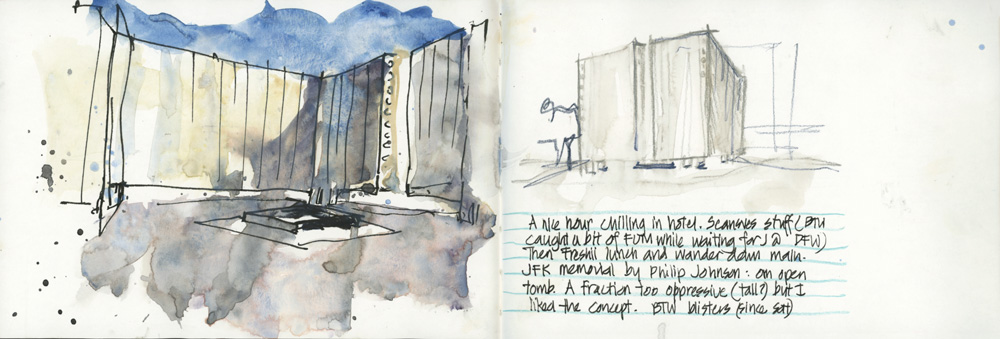 A nice hour chilling in hotel. Seansies stuff (BTW
caught a bit of FUM while waiting for J @ DFW)
Then Freshii lunch and wander down main.
JFK memorial by Philip Johnson: an open
tomb. A fraction too oppressive (tall?) but I
liked the concept. BTW blisters (since sat)